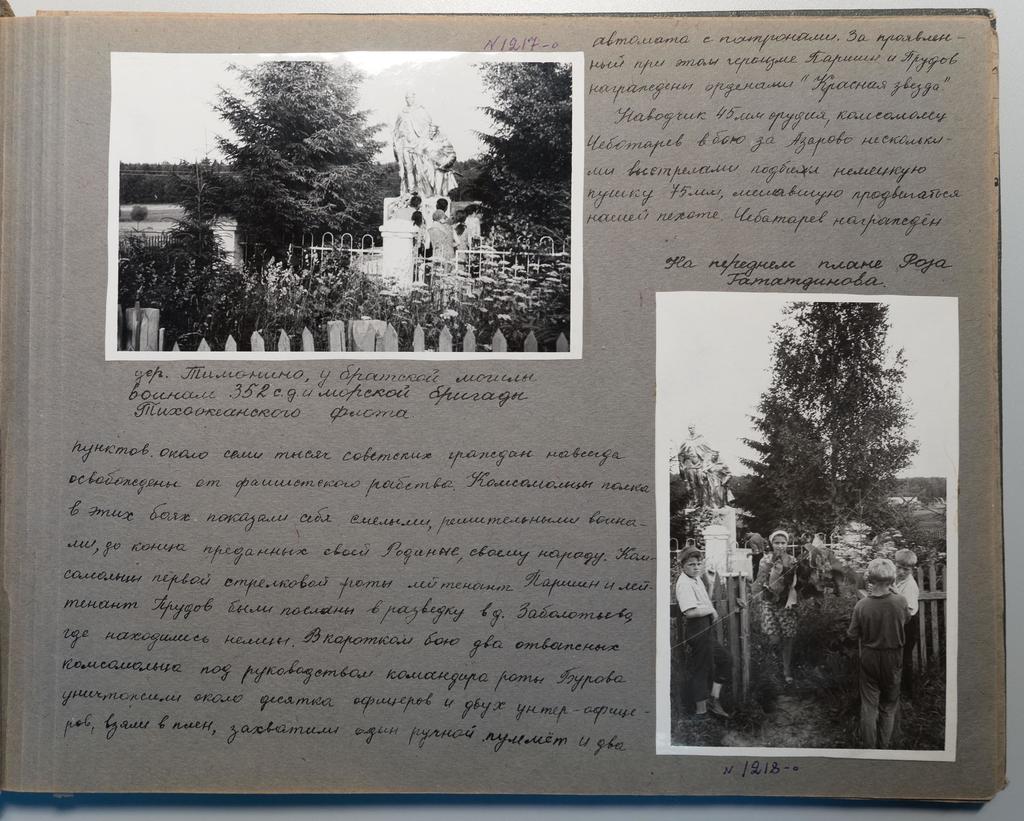 N 1217-о
дер. Тимонино, у братской могилы
воинам 352 с.д. и морской бригады
Тихоокеанского флота.
пунктов. около семи тысяч советских граждан навсегда
освобождены от фашистского рабства. Комсомольцы полка
в этих боях показали себя смелыми, решительными воина-
ми, до конца преданных своей Родине, своему народу. Ком-
сомольцы первой стрелковой роты лейтенант Паршин и лей-
тенант Прудов были посланы в разведку в д. Заболотьево,
где находились немцы. В коротком бою два отважных
комсомольца под руководством командира роты Бурова
уничтожили около десятка офицеров и двух унтер-офице-
ров, взяли в плен, захватили один ручной пулемёт и два
автомата с патронами. За проявлен-
ный при этом героизме Паршин и Прудов
награждены орденами "Красная звезда".
Наводчик 45 мм орудия, комсомолец
Чеботарев в бою за Азарово нескольки-
ми выстрелами подбил немецкую
пушку 75 мм, мешавшую продвигаться
нашей пехоте. Чебатарев награждён
На переднем плане Роза
Гататдинова.
N 1218-о